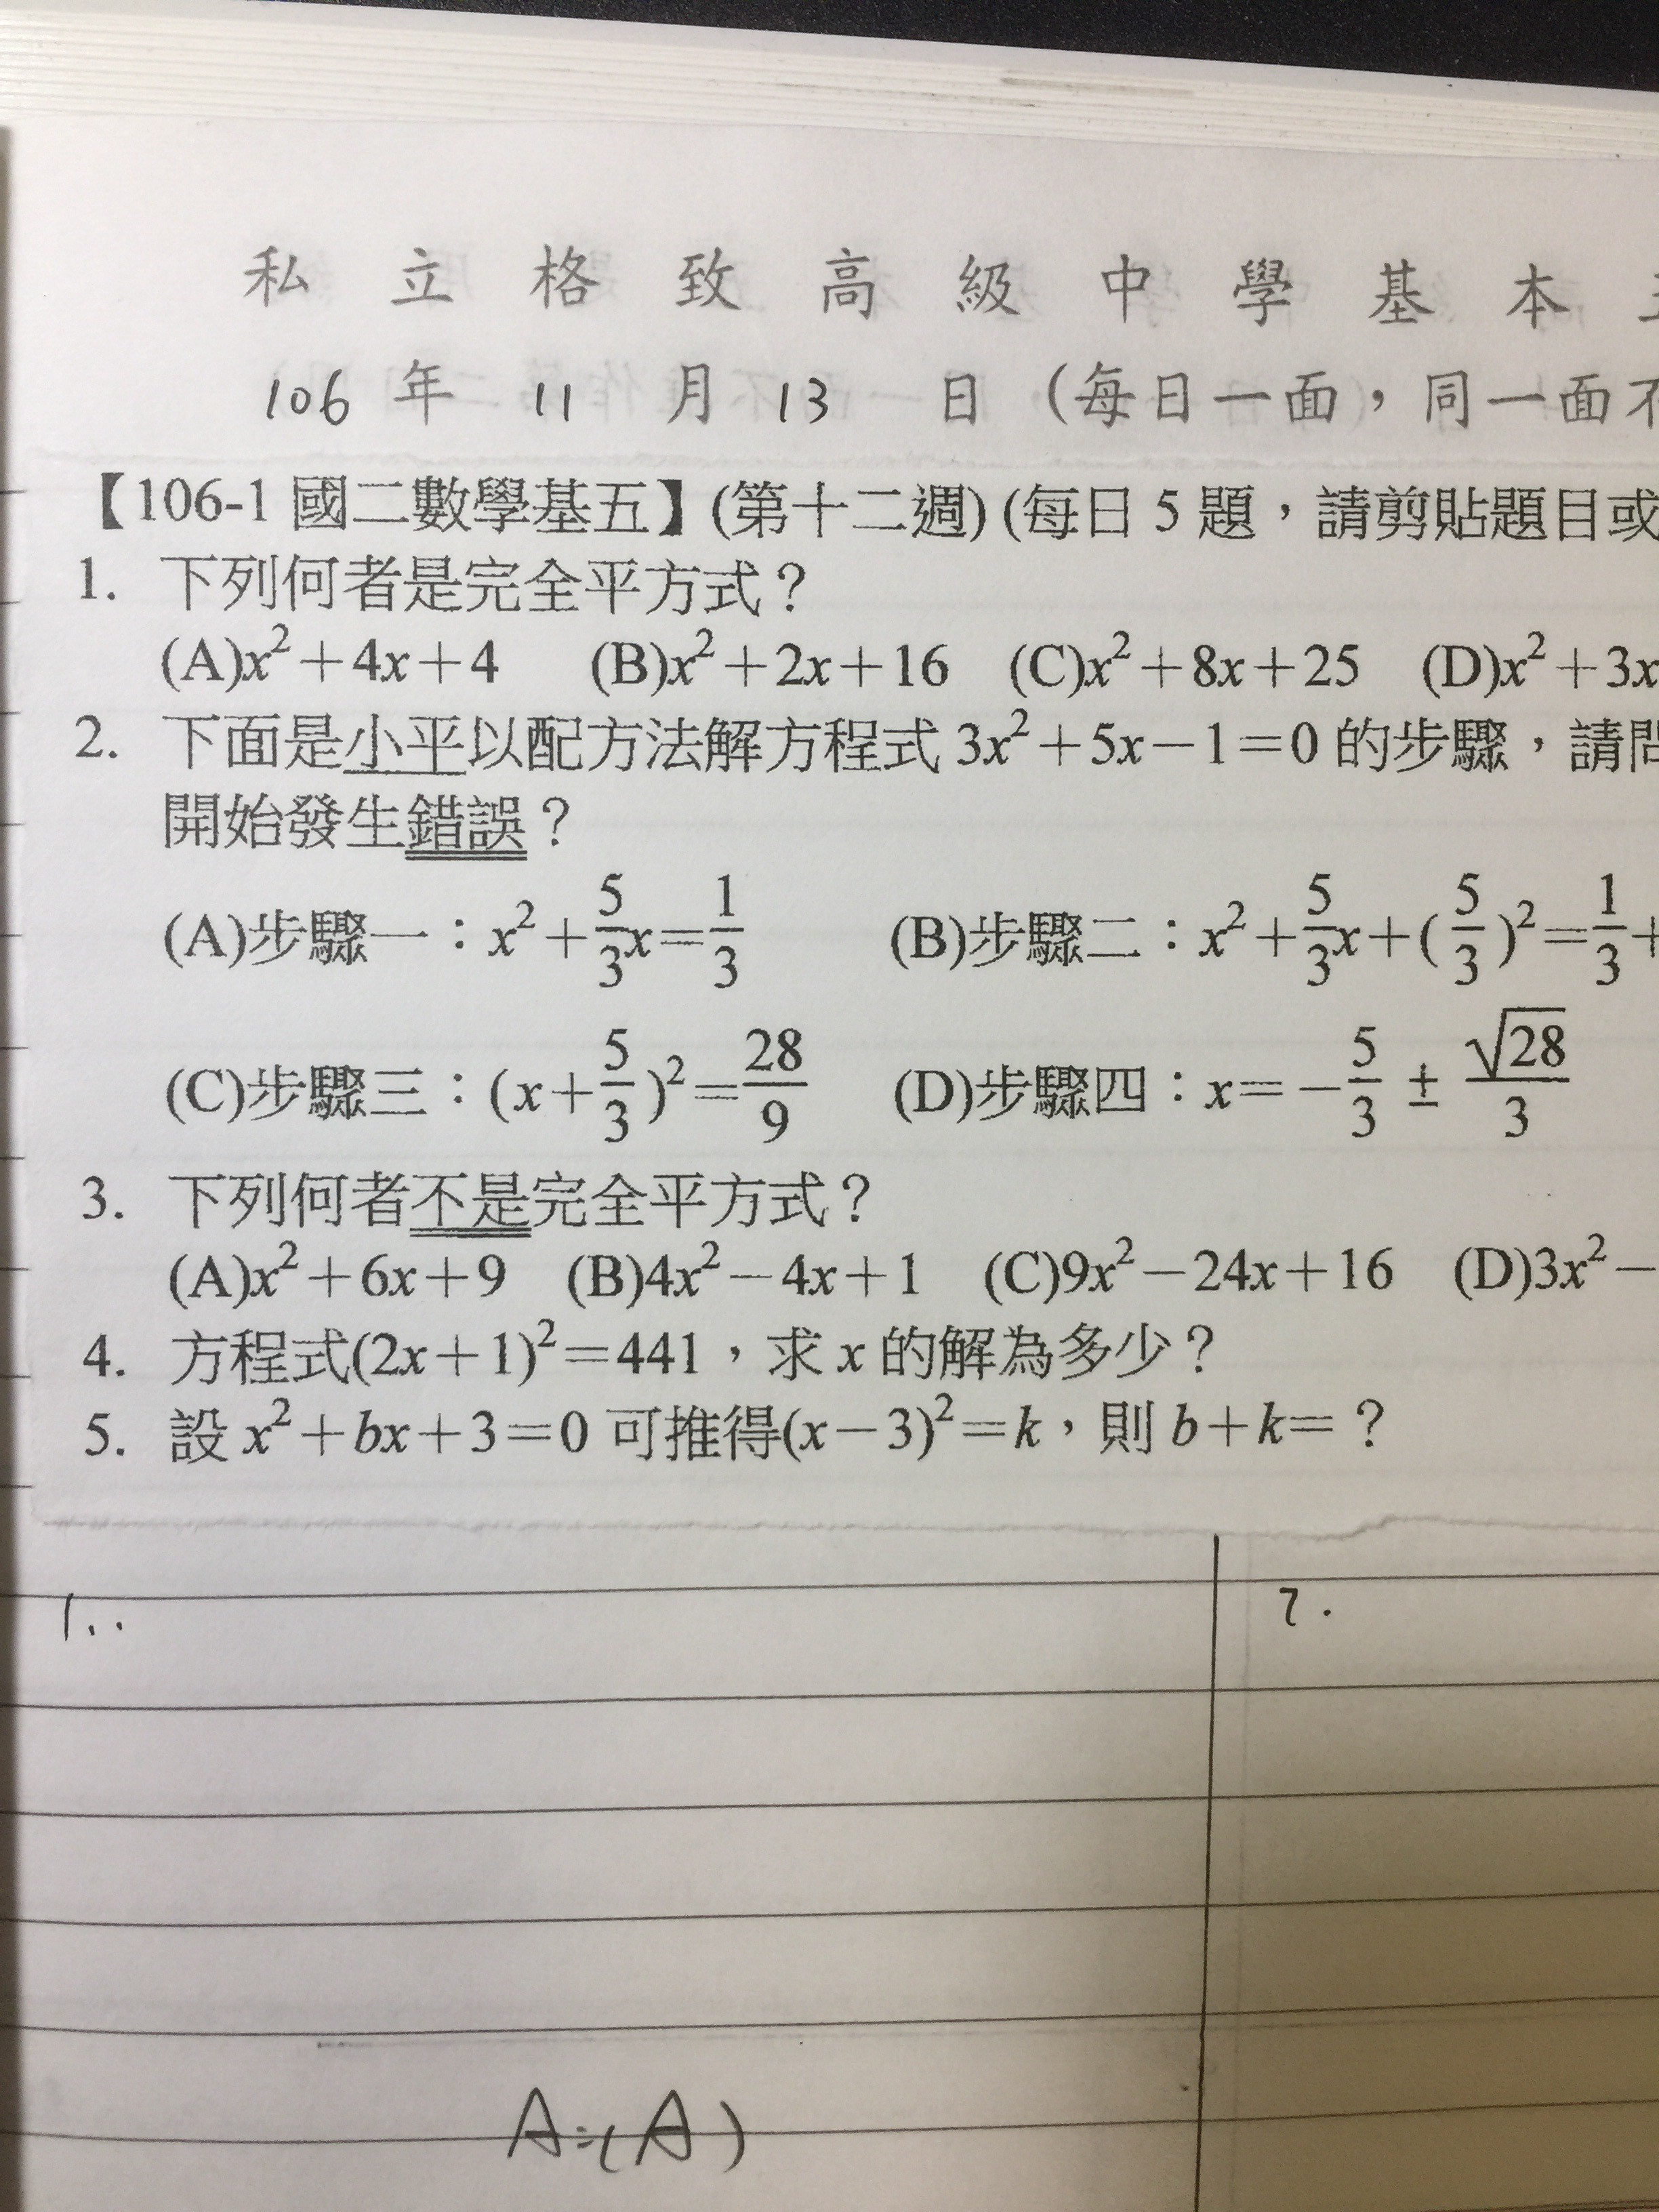 私立格致高級中學基本
106年11月13日(每日一面，同一面不
【106-1國二數學基五】(第十二週)(每日5題，請剪貼題目或
1. 下列何者是完全平方式？
(A)x²+4x+4 (B)x²+2x+16 (C)x²+8x+25 (D)x²+3x
2. 下面是小平以配方法解方程式3x²+5x－1=0的步驟，請問
開始發生錯誤？
(A)步驟一：x²+5/3x=1/3 (B)步驟二：x²+5/3x+(5/3)²=1/3+
(C)步驟三：(x+5/3)²=28/9 (D)步驟四：x=－5/3±√28/3
3. 下列何者不是完全平方式？
(A)x²+6x+9 (B)4x²－4x+1 (C)9x²－24x+16 (D)3x²－
4. 方程式(2x+1)²=441，求x的解為多少？
5. 設x²+bx+3=0可推得(x－3)²=k，則b+k=？
1.. 2.
A:(A)